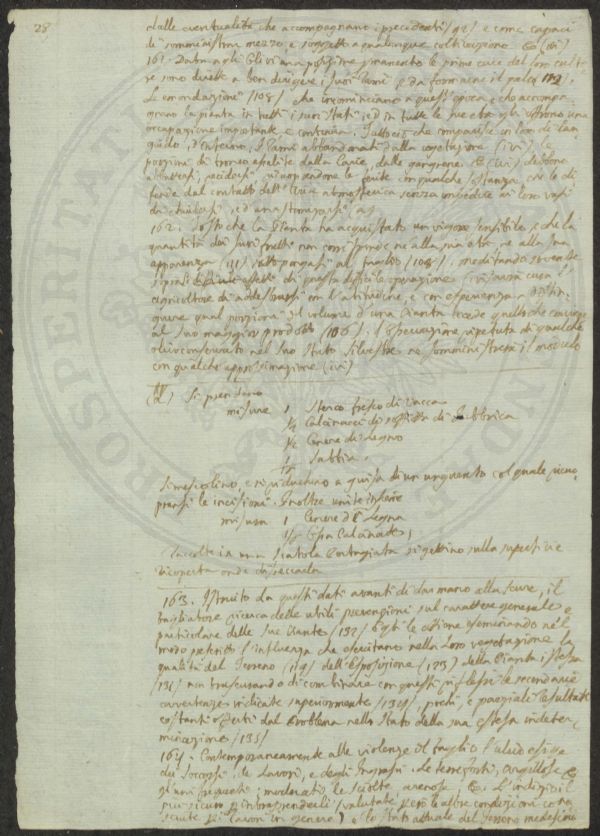 28
dalle eventualità che accompagnano i precedenti /92/ e come capaci
di somministrar mezzo e soggetto a qualunque coltivazione &
161. Data agli Ulivi una posizione le prime cure del loro coltivatore
se sono dirette a ben dirigere i suoi rami e da formarne il palco 112/.
Le emondazione /108/ che incominciano a quest'epoca, e che accompa
gnano la pianta in tutti i suoi stati, ed in tutte le sue età gli offrono una
occupazione importante e continua. Tuttociò che comparisse in loro di lan
guido, d'infermo, i rami abbandonati dalla vegetazione (ivi) le
porzioni di tronco assalite dalla Carie, dalle gangrene & (ivi) debbono
recidersi, ricuoprendone le ferite con qualche sostanza, che le di
fenda dal contatto dell'Aria atmosferica senza impedire ai loro vasi
di chiudersi, ed anastomosarsi (a)
162. Tosto che la Pianta ha acquistato un vigore sensibile, e che la
quantità dei suoi frutti non corrisponde ne alla sua età, ne alla sua
apparenza (111) sottopongasi al taglio /108/. meditando sovente
sopra di questa difficile operazione (ivi) cura l'
agricoltore di addestrarsi con l'attitudine, e con esperienza a distin
guere qual porzione il volume d'una Pianta eccede quello che conviene
al suo maggior prodotto /106/. l'Osservazione ripetuta di qualche
olivo conservato nel suo stato silvestre ne somministrerà il modello
con qualche approssimazione (ivi)
(a) Si prendano
misure 1 Sterco fresco di vacca
1/2 Calcinacci di soffitta di Fabbrica
1/2 Cenere di Legno
Sabbia
Si mescolino, e si riduchino a guisa di un unguento col quale ricuo
pransi le incisioni. Inoltre unite insieme
misura 1 Cenere di Legna
Ossa Calcinate
Raccolte in una Scatola si gettino sulla superficie
ricoperta onde disseccarla
163. Istruito da questi dati avanti di dar mano alla scure, il
tagliatore ricerca delle utili prevenzioni sul carattere generale e
particolare delle sue Piante /132/ Egli le ottiene esaminando nel
modo prescritto l'influenza che esercitano nella loro vegetazione la
qualità del Terreno /119/ dell'Esposizione /123/ della Pianta istessa
/131/ non trascurando di combinare con questi le secondarie
avvertenze indicate superiormente /134/, pochi, e parziali resultati
costanti offerti dal Problema nello stato della sua estesa indeter
minazione /135/
164. Contemporaneamente alle violenze del taglio l'ulivo esige
dei soccorsi, de Lavori, e degli Ingrassi. Le terre forti, argillose &
gli uni frequenti; moderati, le sciolte arenose, &. L'indizio il
più sicuro per intraprenderli (valutate però le altre condizioni cono
sciute pei lavori in genere) è lo stato attuale del Terreno medesimo